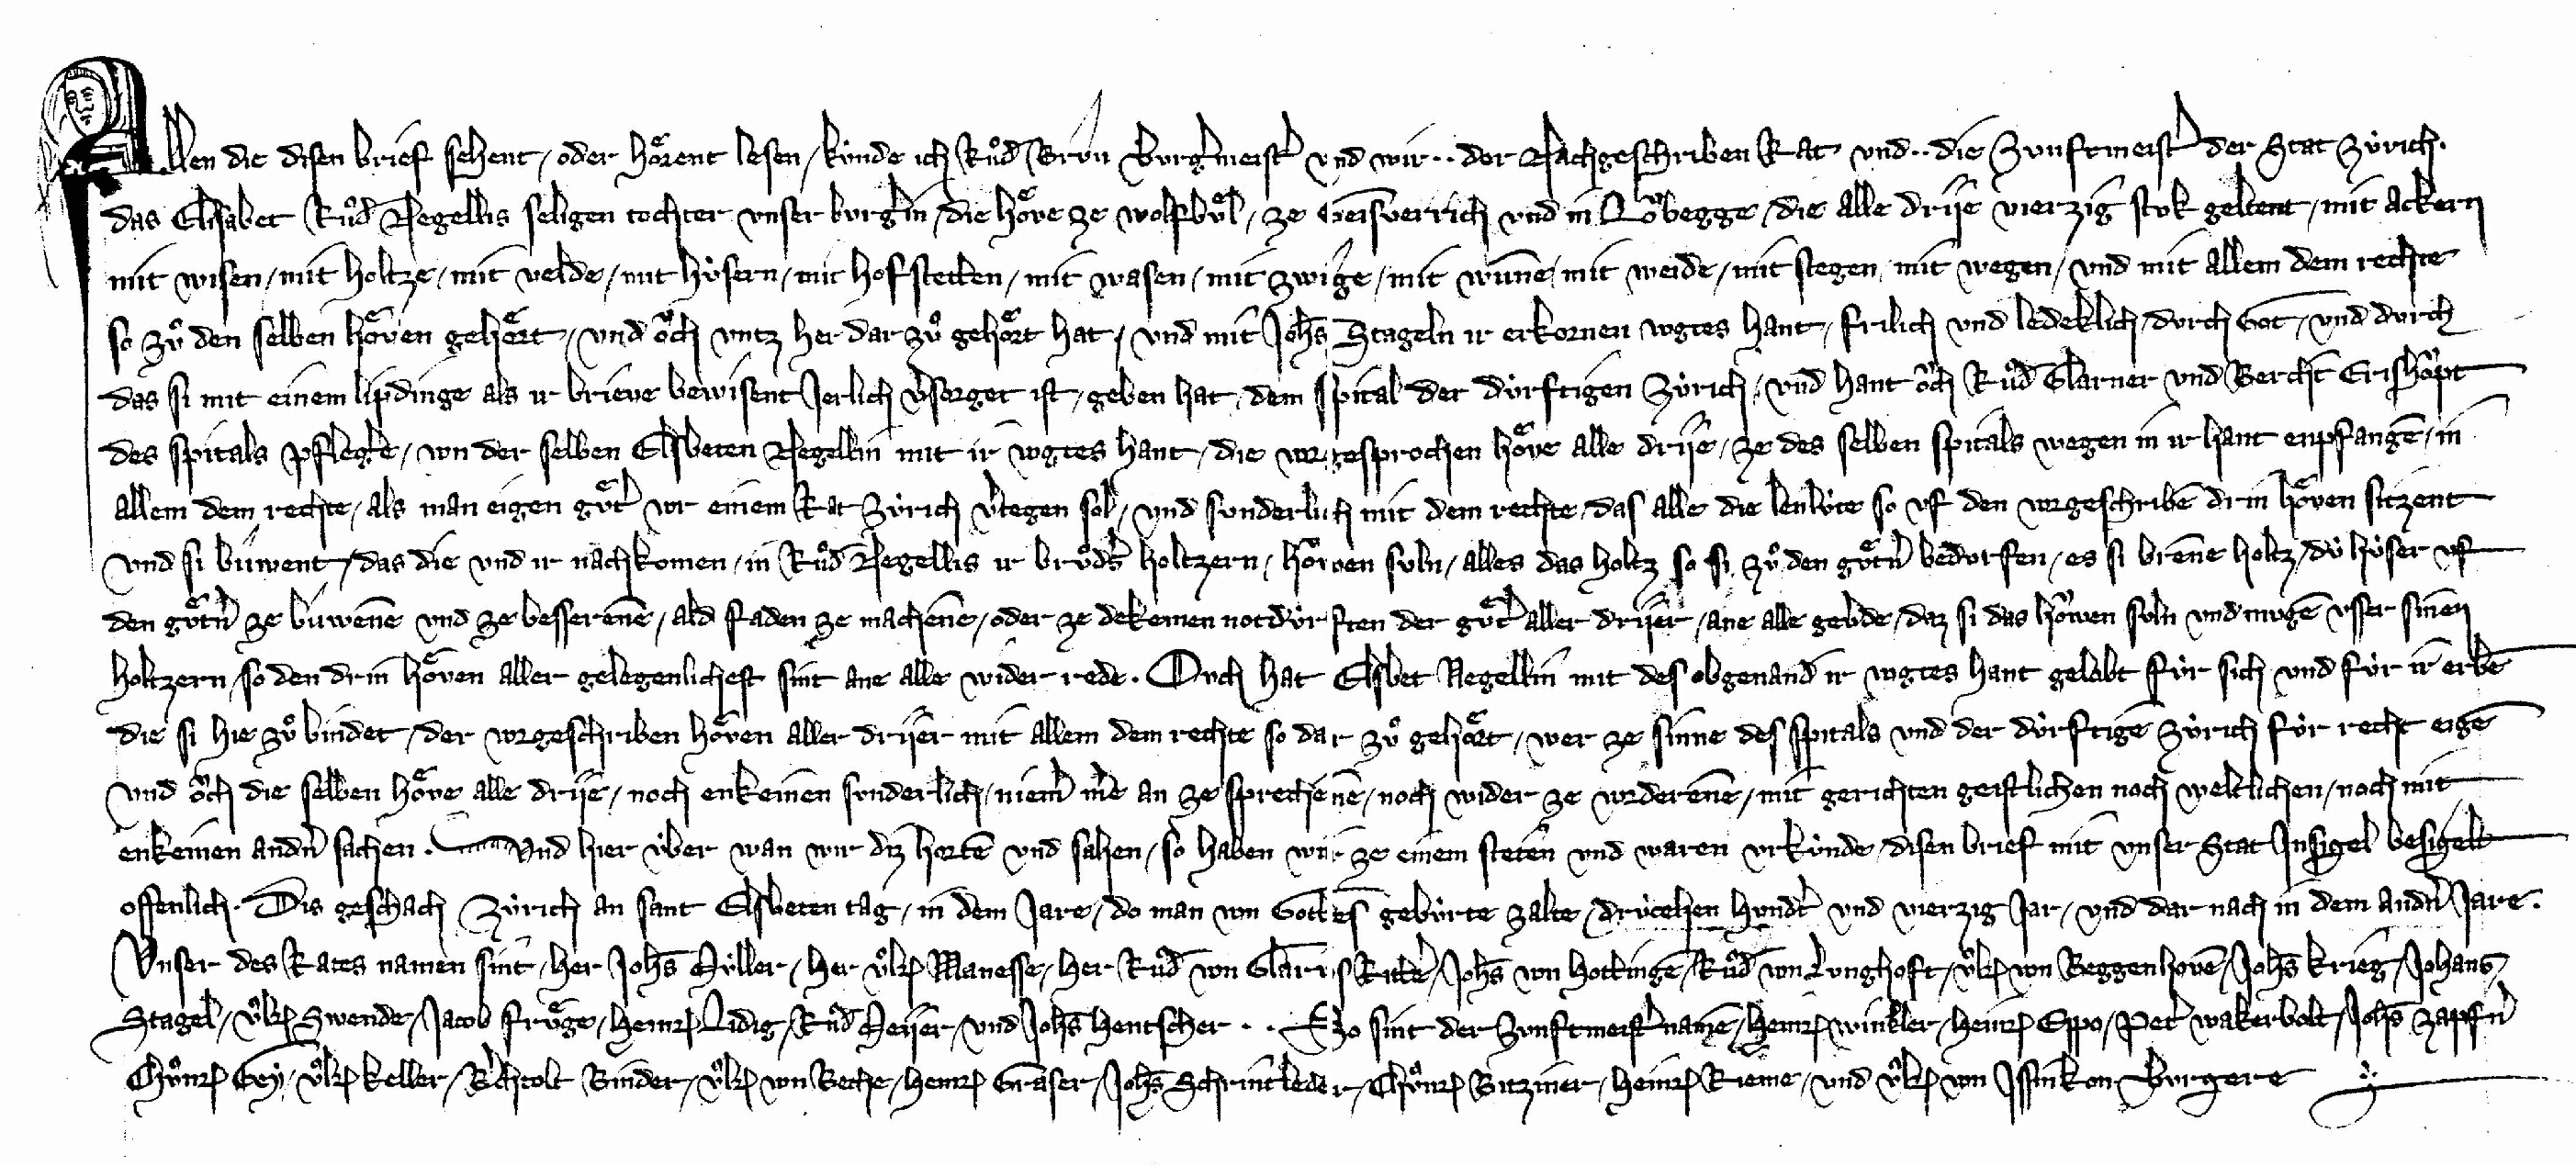 Allen die disen brief sehent / oder hoͤrent lesen / ku̍nde ich Ruͦd Brun Burg̕meist̕ vnd wir ·· der Nachgeschriben Rat vnd ·· die Zunftmeist̕ der Stat Zu̍rich ·
das Elisabet Ruͦd̕ Negellis seligen tochter vnser burg̕in / die hoͤue ze wolfbuͤl / ze Geisuerrich vnd in Loͮbegge / die alle drije vierzig stuk geltent / mit Ackern
mit wisen / mit holtze / mit velde / mit hu̍sern / mit hofstetten / mit wasen / mit zwige / mit wun̄e / mit weide / mit stegen / mit wegen / vnd mit allem dem rechte
so zuͦ den selben hoͤuen gehoͤrt / vnd oͮch vntz her dar zuͦ gehoͤrt hat / vnd mit Joh̄s Stageln ir erkornen vogtes hant / frilich vnd ledeklich / durch Got / vnd durch
das si mit einem lipdinge als ir brieue bewisent Jerlich v̕sorget ist / geben hat / dem spital der du̍rftigen Zu̍rich / vnd hant oͮch Ruͦd̕ Glarner vnd Bercht̕ Erishoͮpt
des spitals pfleg̕e / von der selben Elsbeten Negellin mit ir vogtes hant / die vorgesprochen hoͤue alle drije / ze des selben spitals wegen in ir hant enpfangē / in
allem dem rechte / als man eigen guͤt̕ vor einem Rat Zu̍rich v̕tegen sol / vnd sunderlich mit dem rechte / das alle die lenlu̍te so vf den vorgeschribē drin hoͤuen sitzent
vnd si buwent / das die vnd ir nachkomen / in Ruͦd̕ Negellis ir bruͦd̕s holtzern / hoͮwen suln / alles das holtz so si zuͦ den guͤtn̕ bedurfen / es si bren̄e holtz / du̍ hu̍ser vf
den guͤtn̕ ze buwen̄e vnd ze besseren̄e / ald faden ze machen̄e / oder ze dekeinen notdu̍rften der guͤt̕ aller drijer / ane alle geu̍de / daz si das hoͮwen suln vnd mugē vsser sinen
holtzern / so den drin hoͤuen aller gelegenlichest sint ane alle wider rede · Ouch hat Elsbet Negellin mit des obgenand̕ ir vogtes hant gelobt fu̍r sich vnd fu̍r ir erbē
die si hie zuͦ bindet / der vorgeschriben hoͤuen aller drijer mit allem dem rechte so dar zuͦ gehoͤrt / wer ze sin̄e des spitals vnd der du̍rftigē Zu̍rich fu̍r recht eigē
vnd oͮch die selben hoͤue alle drije / noch enkeinen sunderlich / niem̕ m̕e an ze sprechen̄e / noch wider ze vorderen̄e / mit gerichten geistlichen noch weltlichen / noch mit
enkeinen andn̕ sachen · Vnd hier u̍ber wan wir diz hortē vnd sahen / so haben wir ze einem steten vnd waren vrku̍nde / disen brief mit vnser Stat Jnsigel besigelt
offenlich · Dis geschach Zu̍rich an sant Elsbeten tag / in dem Jare / do man von Gottes gebu̍rte zalte / dru̍cehen hundt̕ vnd vierzig Jar / vnd dar nach in dem andn̕ Jare ·
Vnser des Rates namen sint / her Joh̄s Mu̍ller / her Uͦlr̕ Manesse / her Ruͦd̕ von Glarus Ritt̕e / Joh̄s von Hottingē / Ruͦd̕ von Lunghoft / Uͦlr̕ von Beggenhouē / Joh̄s krieg / Johans
Stagel / Uͦlr̕ Swende / Jacob fruͤge / Heinr̕ Lidig / Ruͦd̕ Meijer / vnd Joh̄s Hentscher · · So sint der Zunftmeist̕ namē / Heinr̕ winkler / Heinr̕ Eppo / Pet̕ wakerbolt / Joh̄s Zapfn̕
Chuͦnr̕ Gey / Uͦlr̕ keller / B̕chtolt Binder / Uͦlr̕ von Beche / Heinr̕ Graser / Joh̄s Schrintleder / Chuͦnr̕ Bitziner / Heinr̕ Rieme / vnd Uͦlr̕ von Jssinkon Burgere